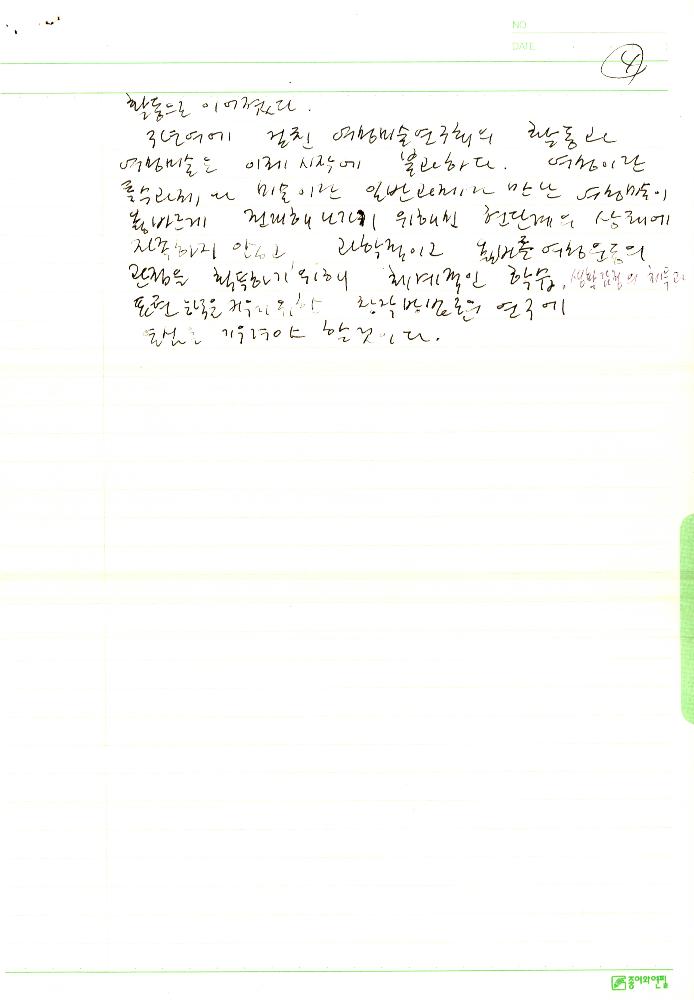 NO
DATE
4
활동으로 이어졌다.
3년여에 걸친 여성미술연구회의 활동과
여성미술은 이제 시작에 불과하다. 여성이란
특수과제와 미술이란 일반과제가 만난 여성미술이
올바르게 전개해 나가기 위해선 현단계의 상태에
자족하지 않고 과학적이고 올바른 여성운동의
관점을 획득하기 위해 체계적인 학습, 생활감정의 체득과
표현 위한 창작방법론 연구에
기울여야 할 것이다.
종이와연필